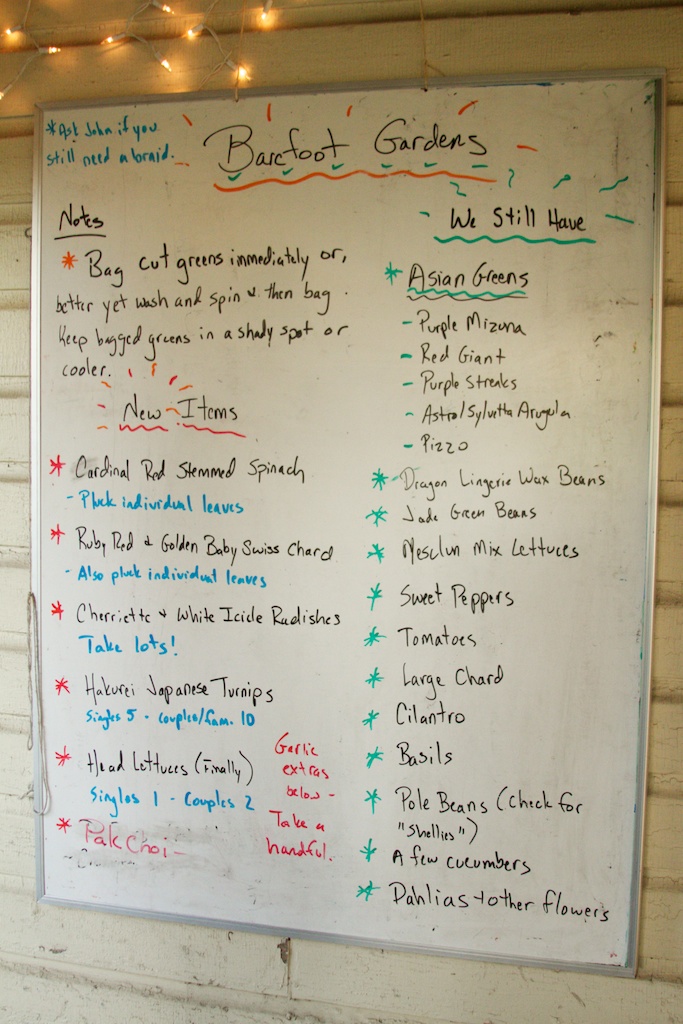 *Ask John if you
still need a braid.
Barefoot Gardens
Notes
* Bag cut greens immediately or,
better yet wash and spin & then bag.
Keep bagged greens in a shady spot or
cooler.
New Items
* Cardinal Red Stemmed Spinach
- Pluck individual leaves
* Ruby Red & Golden Baby Swiss Chard
- Also pluck individual leaves
* Cherriette & White Icicle Radishes
Take lots!
* Hakurei Japanese Turnips
Singles 5 - couples/fam. 10
* Head Lettuces (Finally)
Singles 1 - Couples 2
* Pak Choi -
Garlic
extras
below -
Take a
handful.
We Still Have
* Asian Greens
- Purple Mizuna
- Red Giant
- Purple Streaks
- Astro/Sylvetta Arugula
- Pizzo
* Dragon Lingerie Wax Beans
* Jade Green Beans
* Mesclun Mix Lettuces
* Sweet Peppers
* Tomatoes
* Large Chard
* Cilantro
* Basils
* Pole Beans (Check for
"shellies")
* A few cucumbers
* Dahlias + other flowers